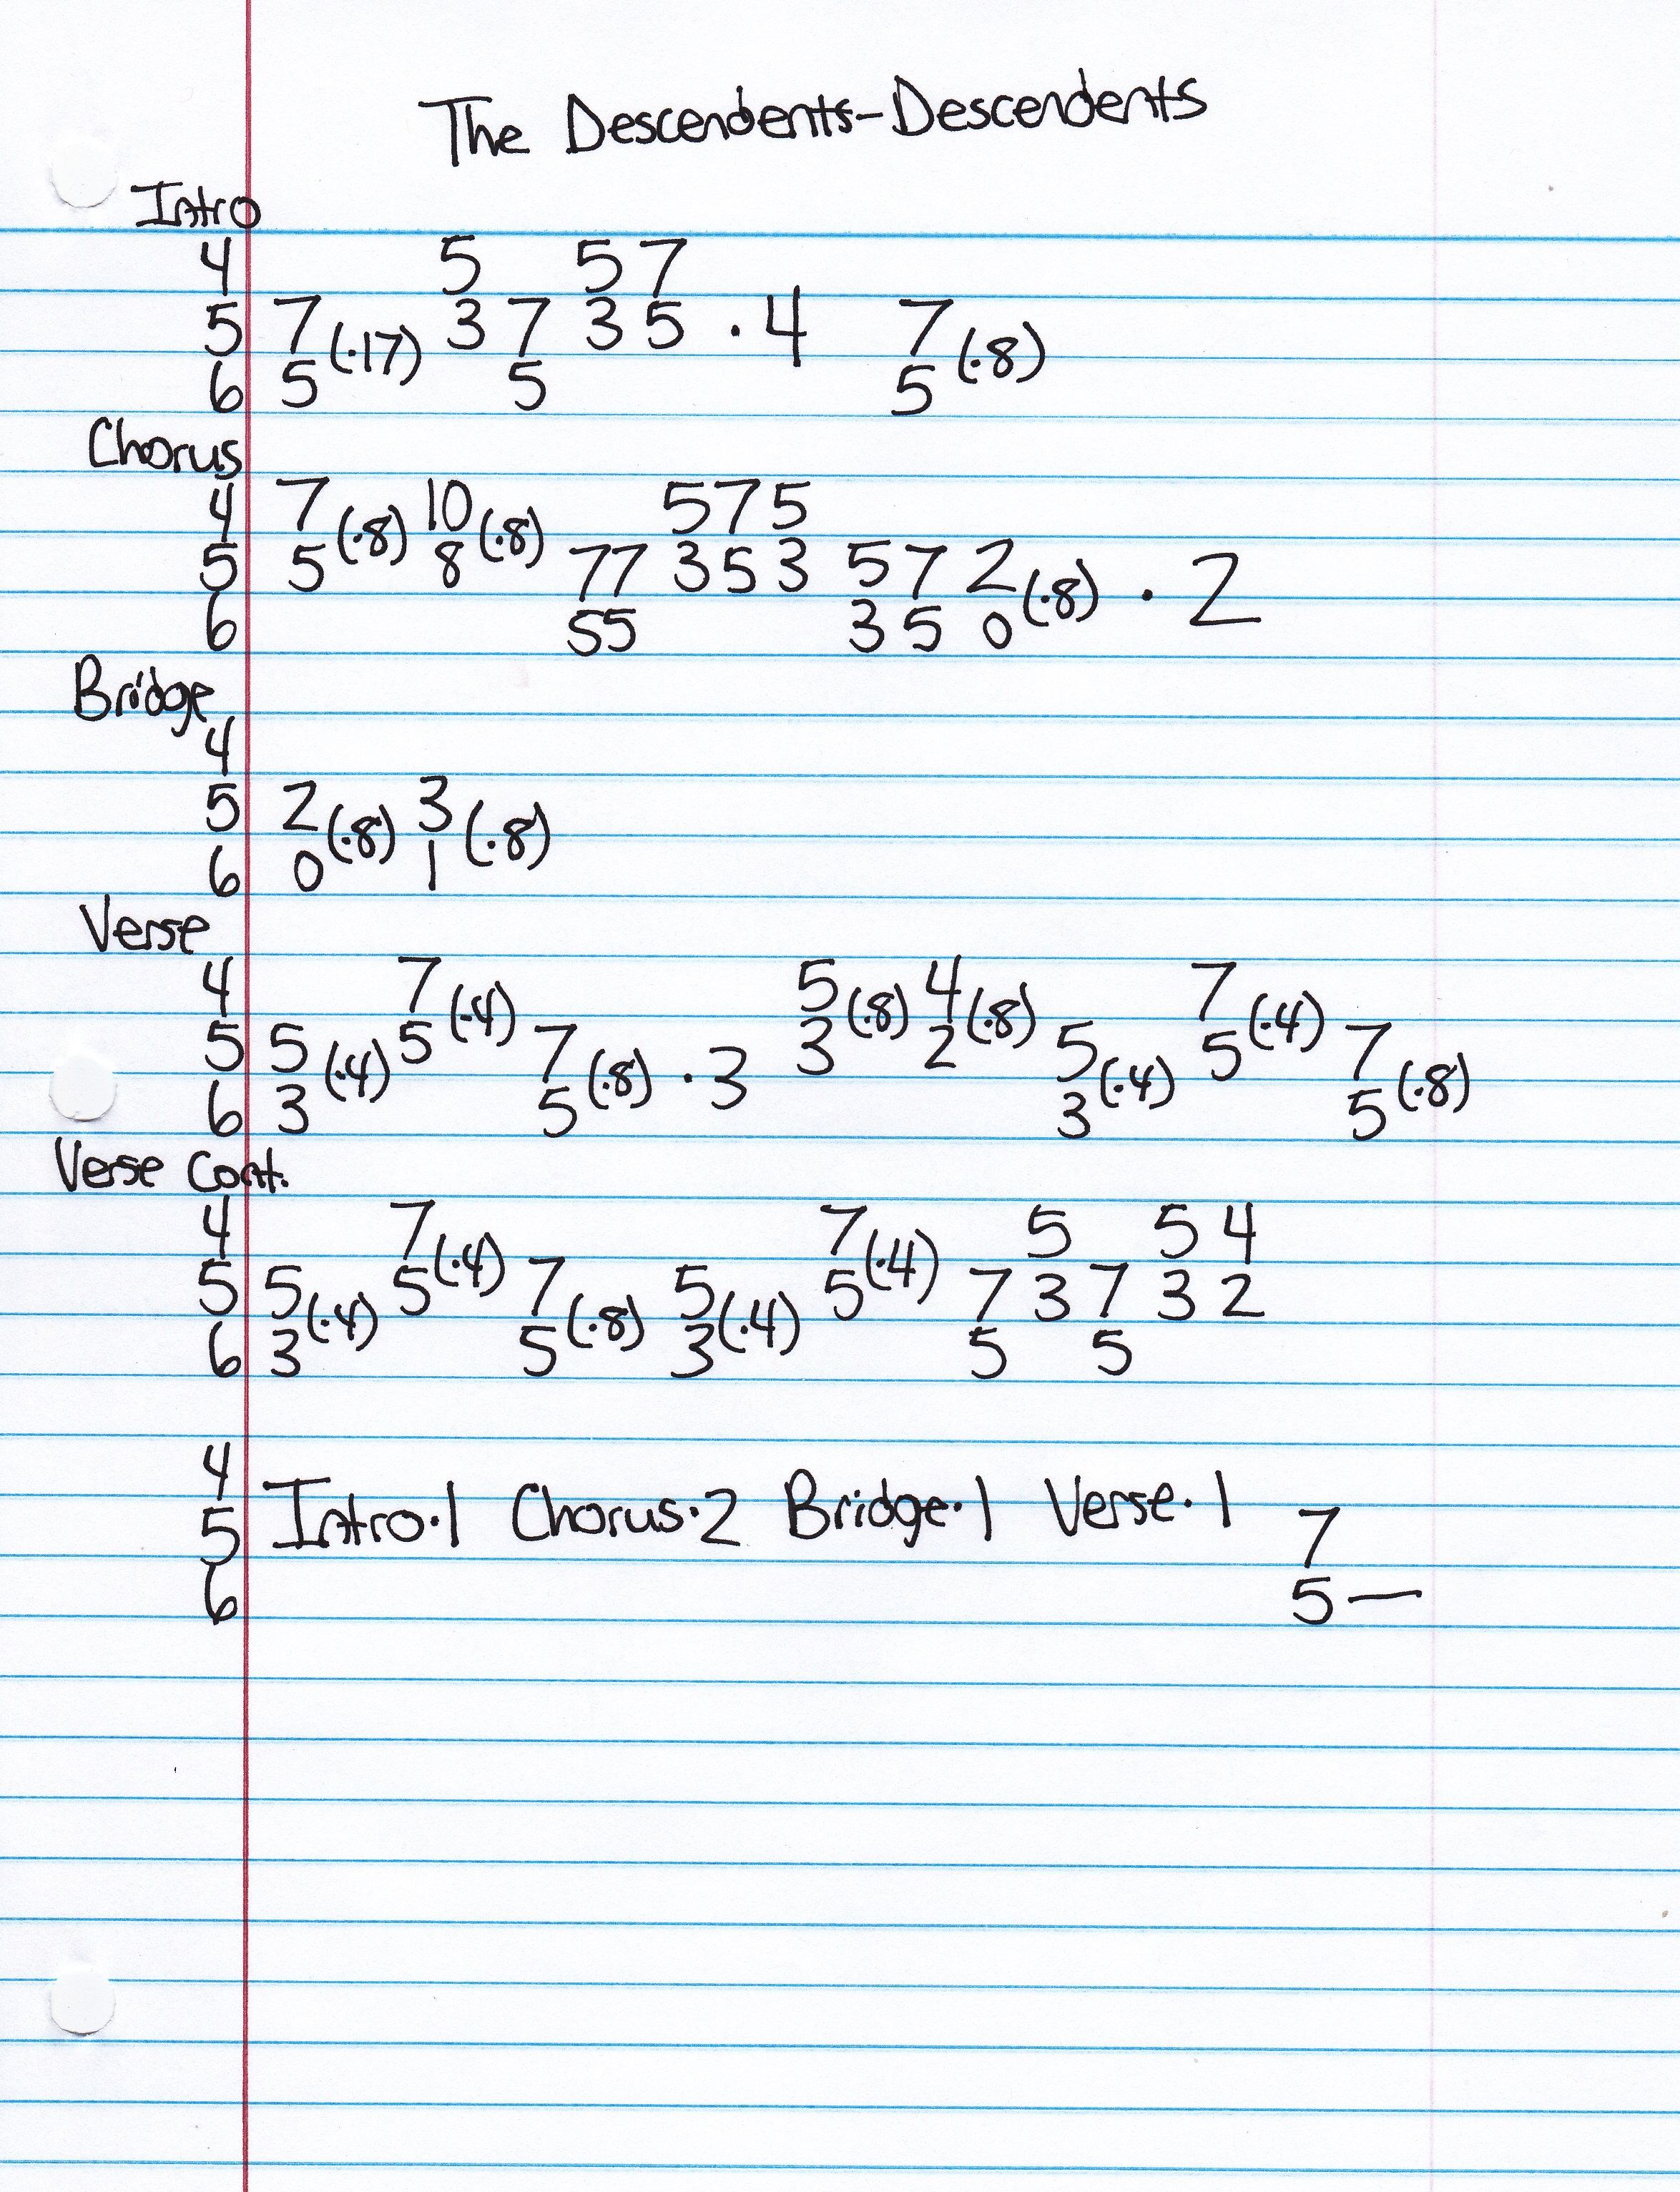 The Descendents-Descendents
Intro
4 5 5 7
5 7 (·17) 3 7 3 5 · 4 7 (·8)
6 5 5 5
Chorus
4 7 (·8) 10 (·8) 5 7 5
5 5 8 7 7 3 5 3 5 7 2 (·8) · 2
6 5 5 3 5 0
Bridge
4
5 2 (·8) 3 (·8)
6 0 1
Verse
4 7 (·4) 5 (·8) 4 (·8) 7 (·4)
5 5 (·4) 5 7 (·8) · 3 3 2 5 (·4) 5 7 (·8)
6 3 5 3 5
Verse Cont.
4 7 (·4) 7 (·4) 5 5 4
5 5 (·4) 5 7 (·8) 5 (·4) 5 7 3 7 3 2
6 3 5 3 5 5
4
5 Intro·1 Chorus·2 Bridge·1 Verse·1 7
6 5 —